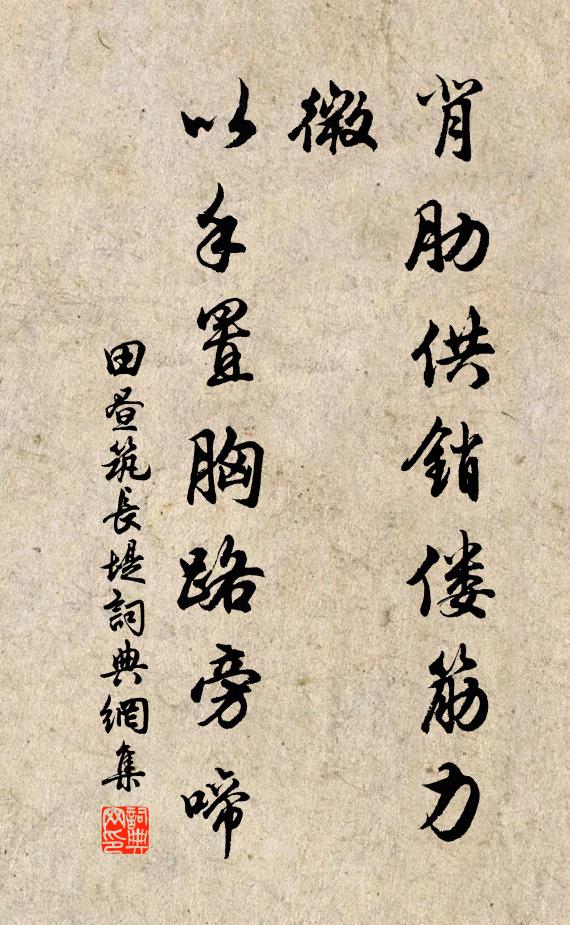 背肋供銷偻筋力
微
以手置胸路旁啼
田昼筑長堤詞典網集
詞典
网印